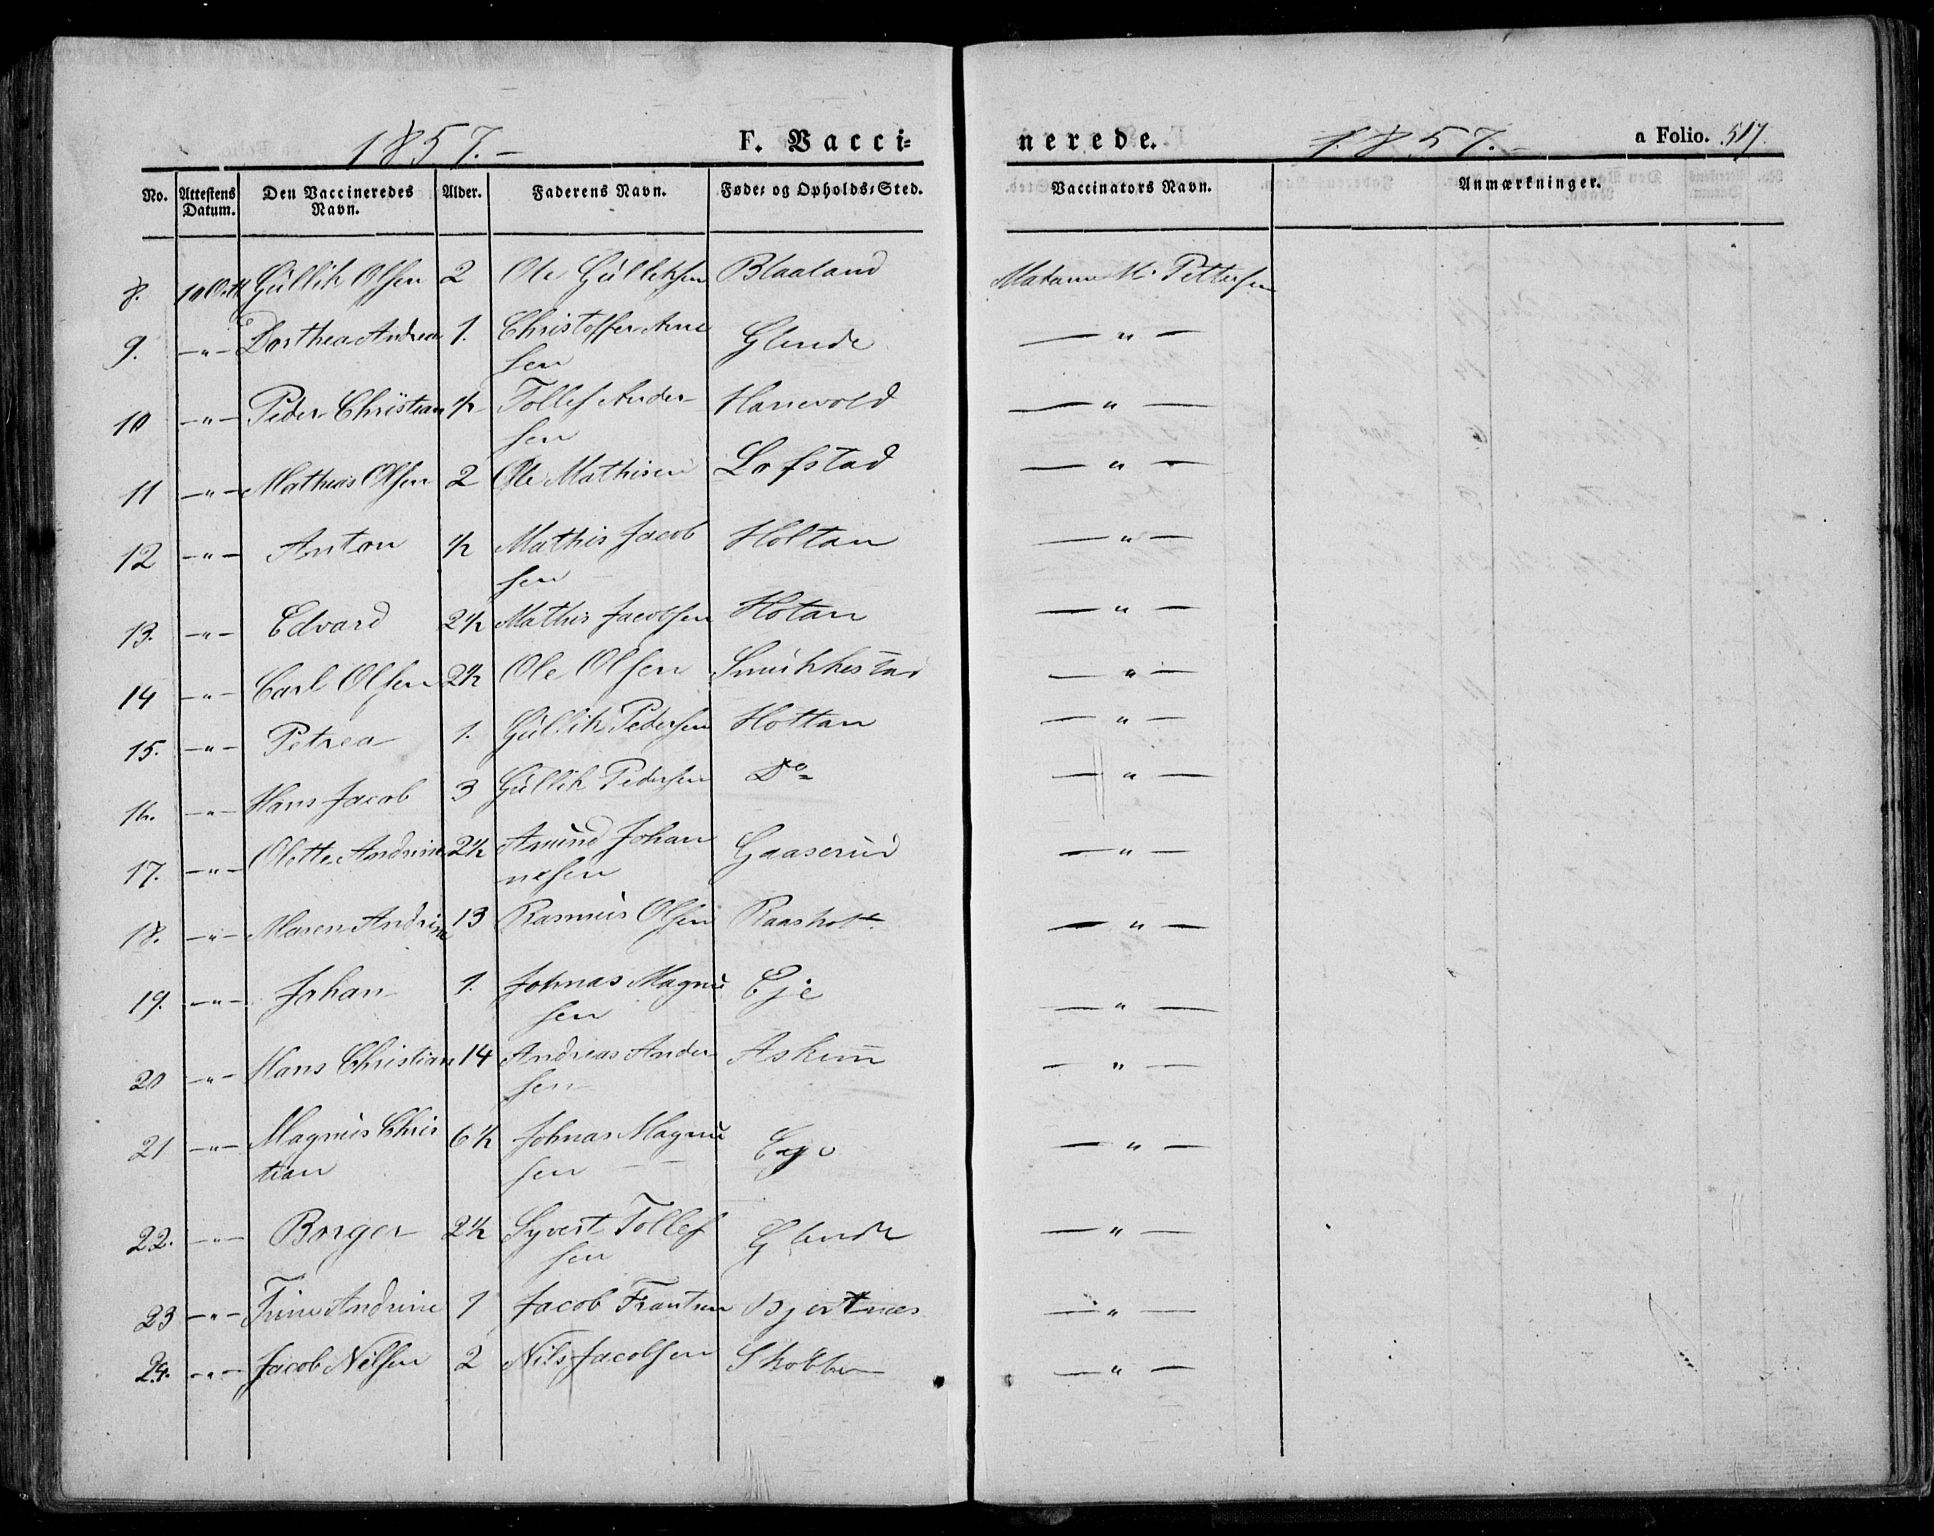 1857.- F. Vacci= nerede. 1857.- a Folio. 517.
No. Attestens Datum. Den Vaccineredes Navn. Alder. Faderens Navn. Føde= og Opholds=Sted. Vaccinators Navn. Anmærkninger.
8. 10 Gullik Olsen 2 Ole Gulleksen Blaaland Madame M. Pettersen
9. -"- Dorthea Andrea 1. Christoffer Arne Glende — " —
sen
10 -"- Peder Christian 1/2 Tollef Ander- Hanevold — " —
sen
11 -"- Mathias Olsen 2 Ole Mathisen Lofstad — " —
12 -"- Anton 1/2 Mathis Jacob Holtan — " —
sen
13. -"- Edvard 2 1/2 Mathis Jacobsen Hotan — " —
14 -"- Carl Olsen 2 1/2 Ole Olsen Smukkestad — " —
15. -"- Petrea 1. Gullik Pedersen Holtan — " —
16. -"- Hans Jacob 3 Gullik Pedersen Do — " —
17. -"- Olotte Andrine 2 1/2 Amund Johan Gaaserud — " —
nesen
18. -"- Maren Andrine 13 Rasmus Olsen Raasholt — " —
19. -"- Johan 1. Johnas Magnu Eje — " —
sen
20 -"- Hans Christian 14 Andreas Ander Askim — " —
sen
21 -"- Magnus Chris 6 1/2 Johnas Magnu Eje — " —
tian sen
22. -"- Borger 2 1/2 Syvert Tollef Glende — " —
sen
23 -"- Trine Andrine 1 Jacob Frantsen Bjertnæs — " —
24. -"- Jacob Nilsen 2 Nils Jacobsen — " —